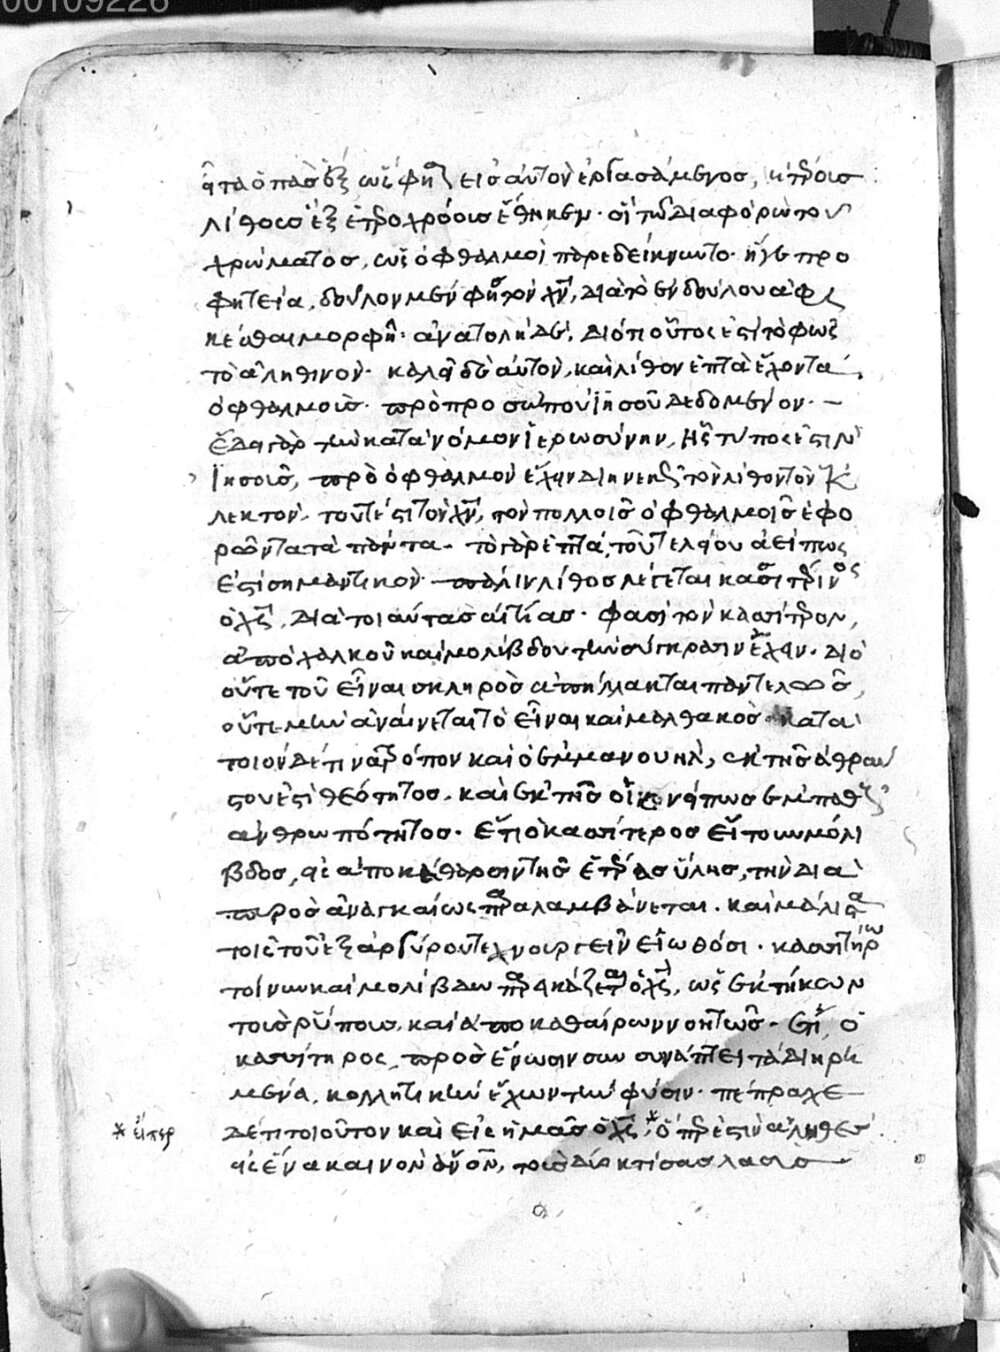 00109226
λίθοις ἐξ ἑτεροχρόοις ἔθηκεν· οἱ τῶν διαφόρων τοῦ
χρώματος, ὡς ὀφθαλμοὶ παρεδείκνυντο· ἡ γοῦν προ
φητεία, δοῦλον μέν φησι τὸν χν, διὰ τὸ ἐν δούλου ἀφ
κέσθαι μορφῇ· ἀνατολὴ δέ, διόπερ οὗτος ἐστι τὸ φῶς
τὸ ἀληθινόν· καλεῖ δὲ αὐτὸν, καὶ λίθον ἑπτὰ ἔχοντα
ὀφθαλμοὺς· πρὸ προσώπου ἰησοῦ δεδομένον·
ἔδει γὰρ τὴν κατὰ νόμον ἱερωσύνην, ἧς τύπος ἐστὶν
ἰησοῦς, πρὸ ὀφθαλμῶν ἔχειν διηνεκῶς τὸν λίθον τὸν ἐκ
λεκτὸν· τουτέστι τὸν χν, τὸν πολλοῖς ὀφθαλμοῖς ἐφο
ρῶντα τὰ πάντα· τὸ γὰρ ἑπτὰ, τοῦ τελείου ἀεί πως
ἐστὶ σημαντικόν· πάλιν λίθος λέγεται κασσιτέρινος
ὁ χς, διὰ τοιαύτας αἰτίας· φασὶ τὸν κασσίτερον,
ἀπὸ χαλκοῦ καὶ μολίβδου τὴν σύγκρασιν ἔχειν· διὸ
οὔτε τοῦ εἶναι σκληρὸς ἀπήλλακται παντελῶς,
οὔτε μὴν ἀναίνεται τὸ εἶναι καὶ μαλθακός· κατὰ
τοιόνδε τινὰ τρόπον καὶ ὁ ἐμμανουὴλ, ἐκ τῆς ἀθραύ
στου ἐστὶ θεότητος, καὶ ἐκ τῆς οἱονήπως ἐμπαθοῦς
ἀνθρωπότητος· ἔτι ὁ κασσίτερος εἴτουν μόλι
βδος, εἰς ἀποκάθαρσιν τῆς ἑτέρας ὕλης, τὴν διὰ
πυρὸς ἀναγκαίως παραλαμβάνεται· καὶ μάλιστα
τοῖς τοῦ ἐξ ἀργύρου τεχνουργεῖν εἰωθόσι· κασσιτήρω
τοίνυν καὶ μολίβδω παρεικάζεται ὁ χς, ὡς ἐκτήκων
τοὺς ῥύπους, καὶ ἀποκαθαίρων νοητῶς· ἔτι, ὁ
κασσίτηρος, πρὸς ἕνωσιν συνάπτει τὰ διῃρη
μένα, κολλητικὴν ἔχων τὴν φύσιν· πέπραχε
δέ τι τοιοῦτον καὶ εἰς ἡμᾶς ὁ χς, ὅπερ ἐστὶν ἀληθὲς
* εἴπερ
εἰς ἕνα καινὸν ἄνον, τοὺς δύο κτίσας λαοὺς